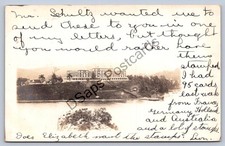 Mr. Schultz wanted me to
send these to you in one
of my letters, but thought
you would rather have
them
stamped
I had
95 cards
last week
from France
Germany Holland
and Australia
and a lot of stamps
Does Elizabeth want the stamps